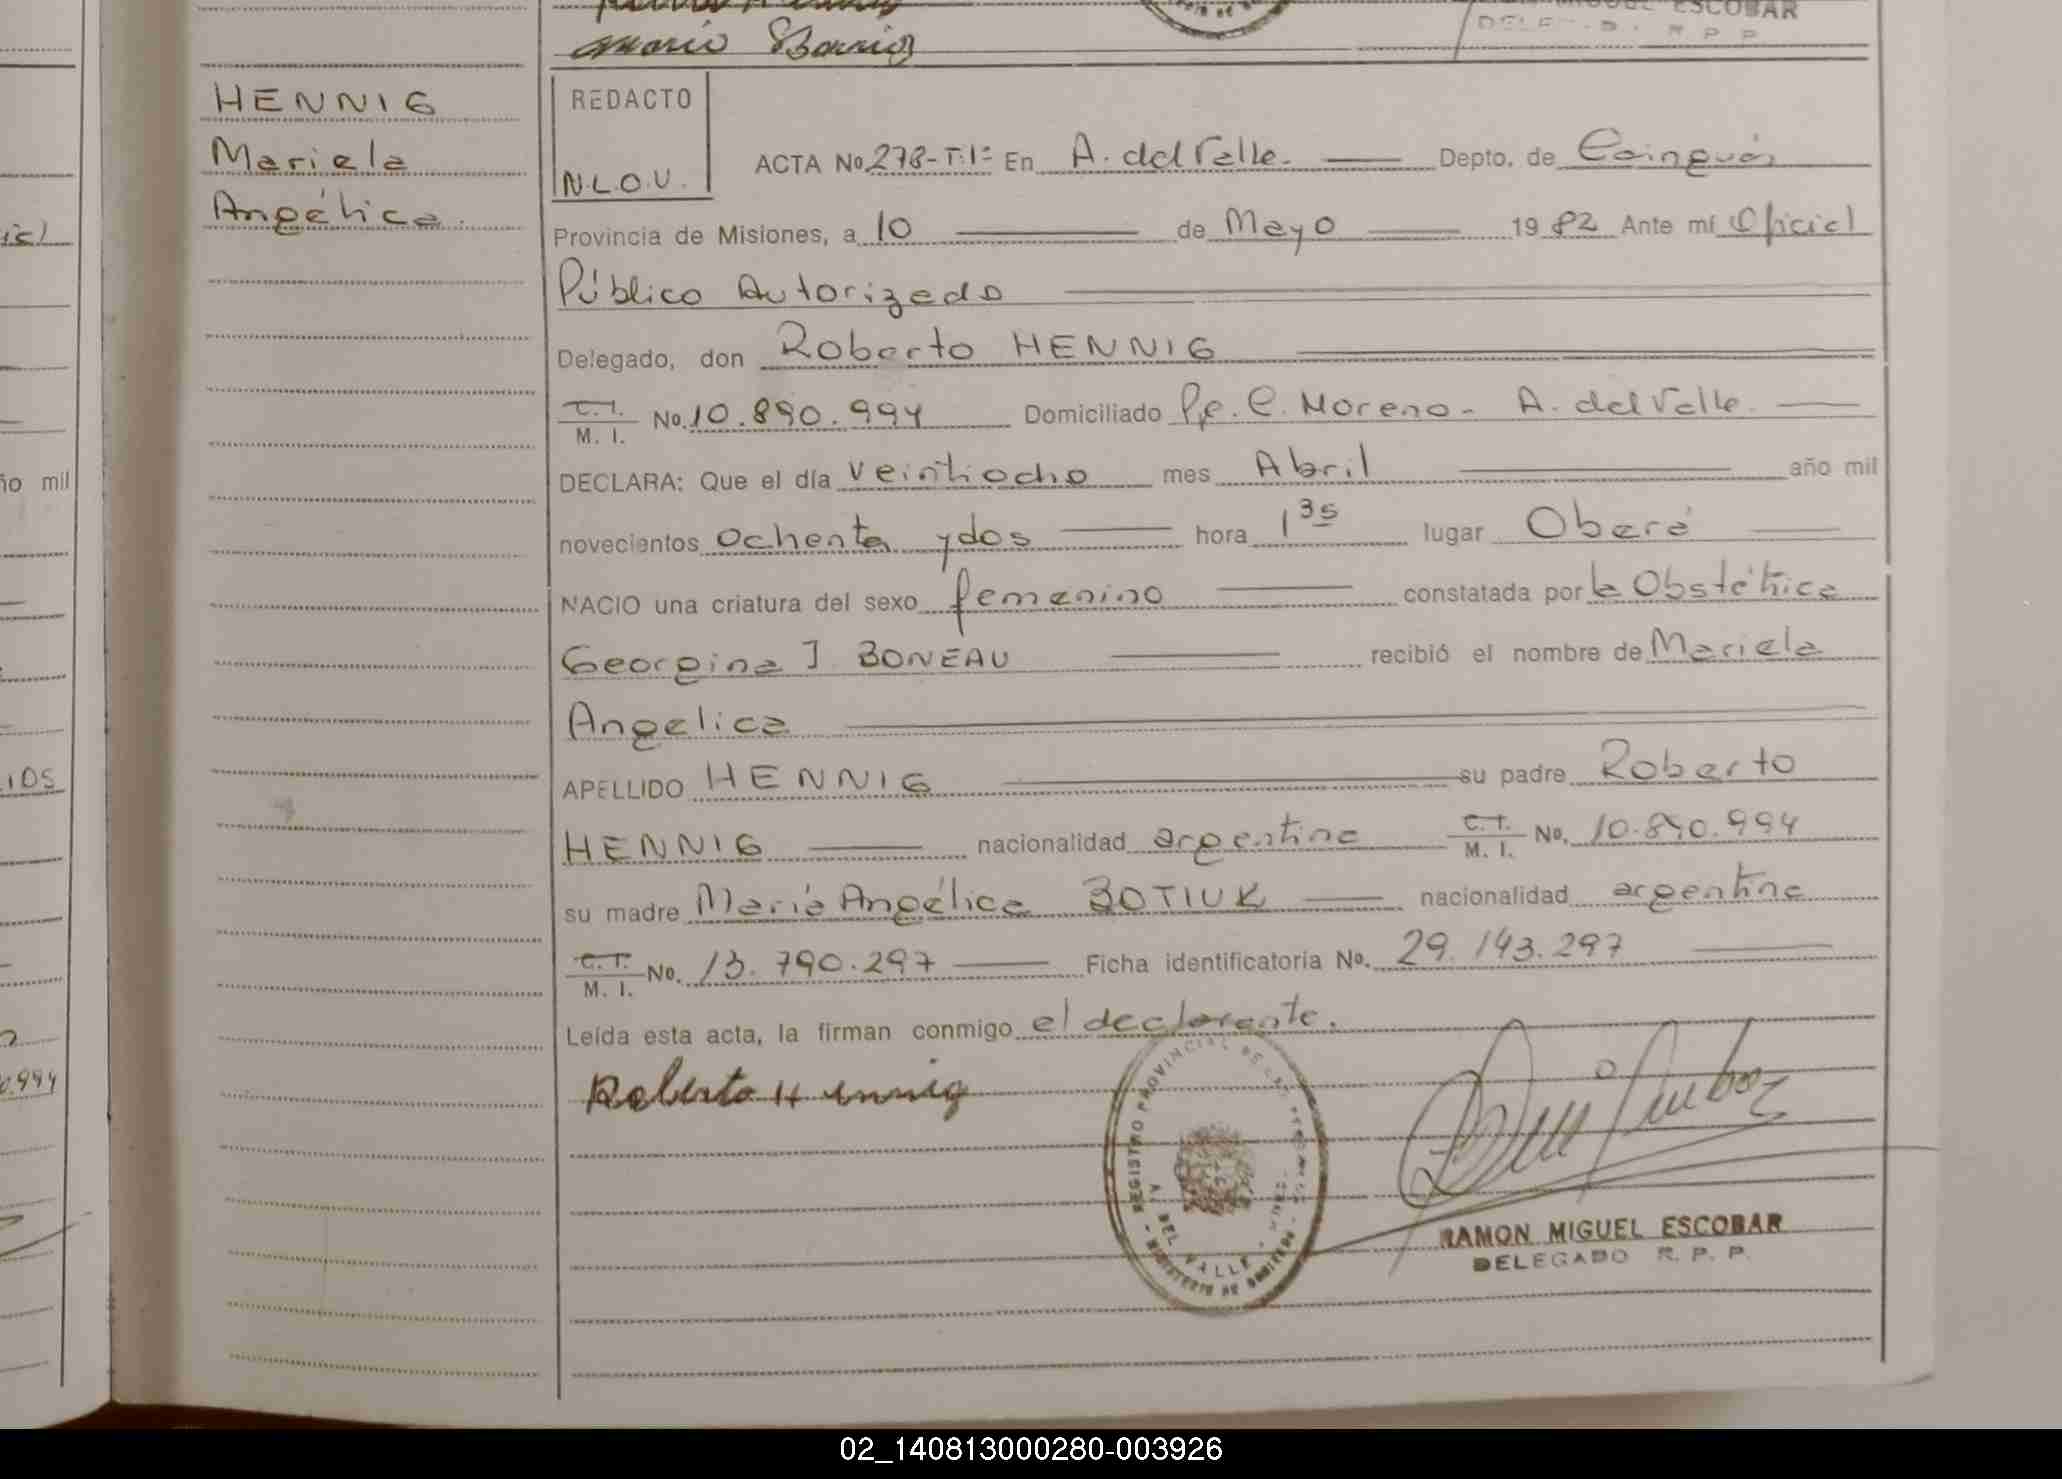 Mario Barrios
ESCOBAR
HENNIG
Mariela
Angélica.
REDACTO
N.L.O.U.
ACTA No. 278-T:1º En A. del Valle. Depto. de Cainguás
Provincia de Misiones, a 10 de Mayo 19 82 Ante mí Oficial
Público Autorizado
Delegado, don Roberto HENNIG
C. I. M. I. No. 10.890.994 Domiciliado Pje. C. Moreno - A. del Valle.
DECLARA: Que el día veintiocho mes Abril año mil
novecientos ochenta y dos hora 1 35 lugar Oberá
NACIO una criatura del sexo femenino constatada por la Obstétrica
Georgina J BONEAU recibió el nombre de Mariela
Angelica
APELLIDO HENNIG su padre Roberto
HENNIG nacionalidad argentina C. I. M. I. No. 10.890.994
su madre María Angélica BOTIUK nacionalidad argentina
C. I. M. I. No. 13.790.297 Ficha identificatoria No. 29.143.297
Leída esta acta, la firman conmigo el declarante.
Roberto Hennig
REGISTRO PROVINCIAL DE LAS PERSONAS
A DEL VALLE
MINISTERIO DE GOBIERNO
RAMON MIGUEL ESCOBAR
DELEGADO R. P. P.
ño mil
02_140813000280-003926